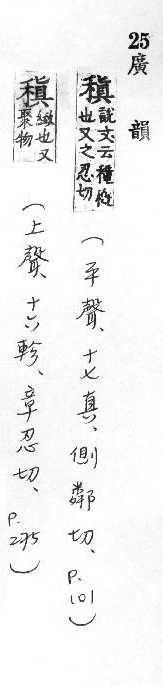 25 廣韻
稹 說文云種穊也又之忍切 (平聲、十七真、側鄰切、p.101)
稹 緻也又聚物 (上聲、十六軫、章忍切、p.275)